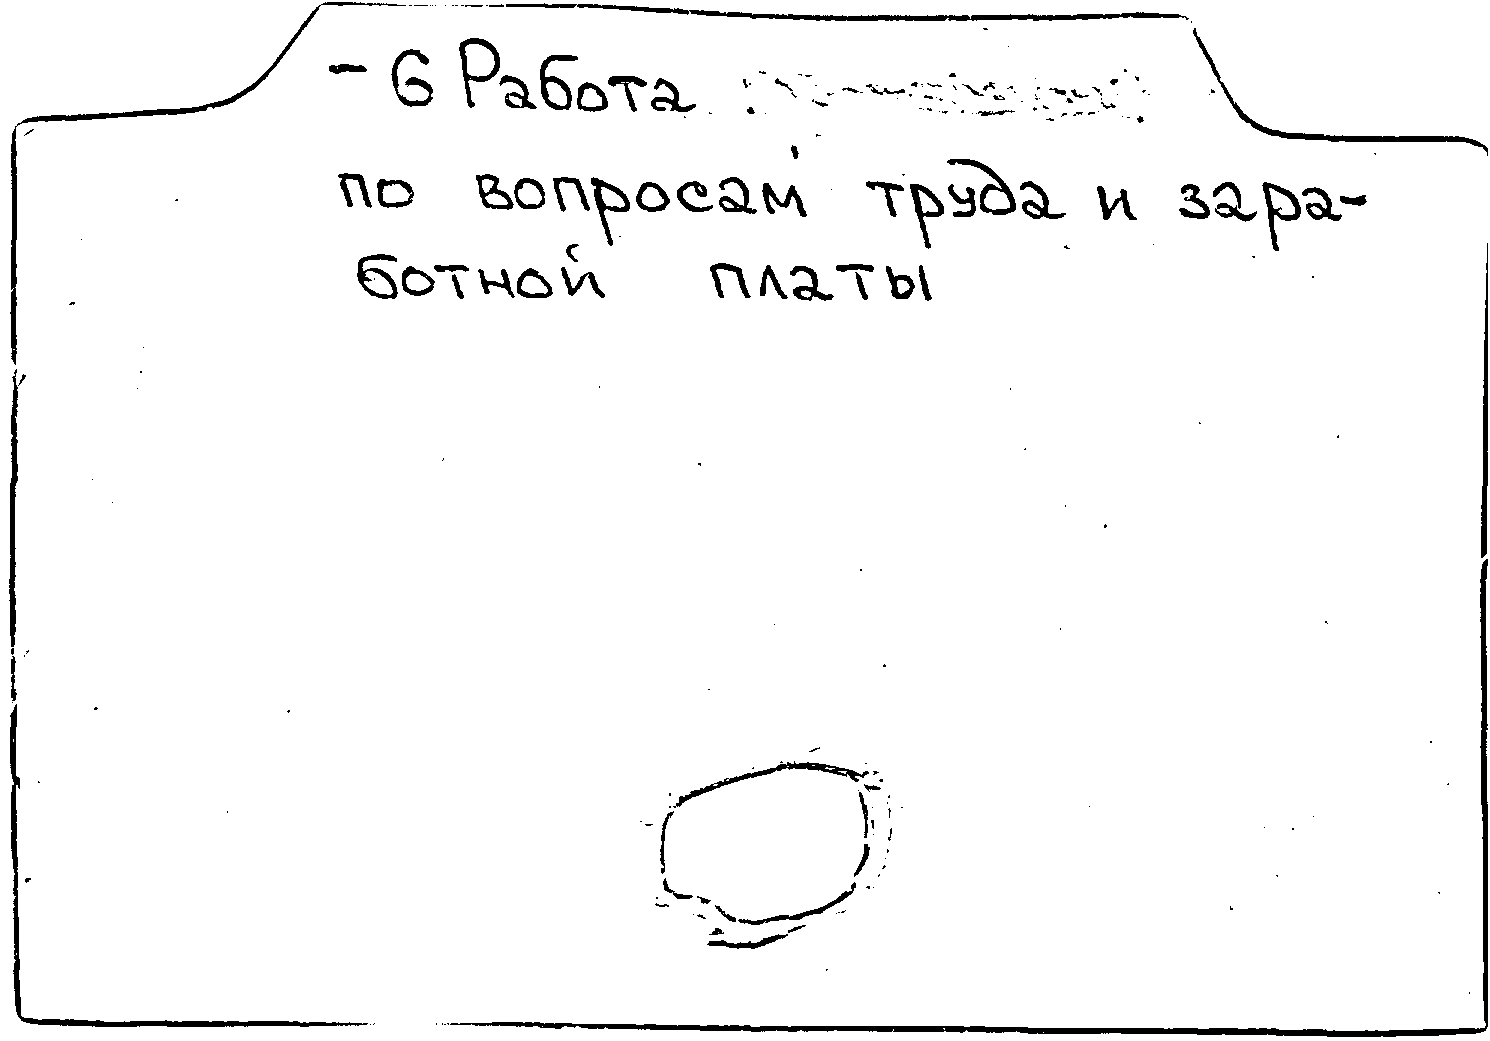 - 6 Работа
по вопросам труда и зара-
ботной платы